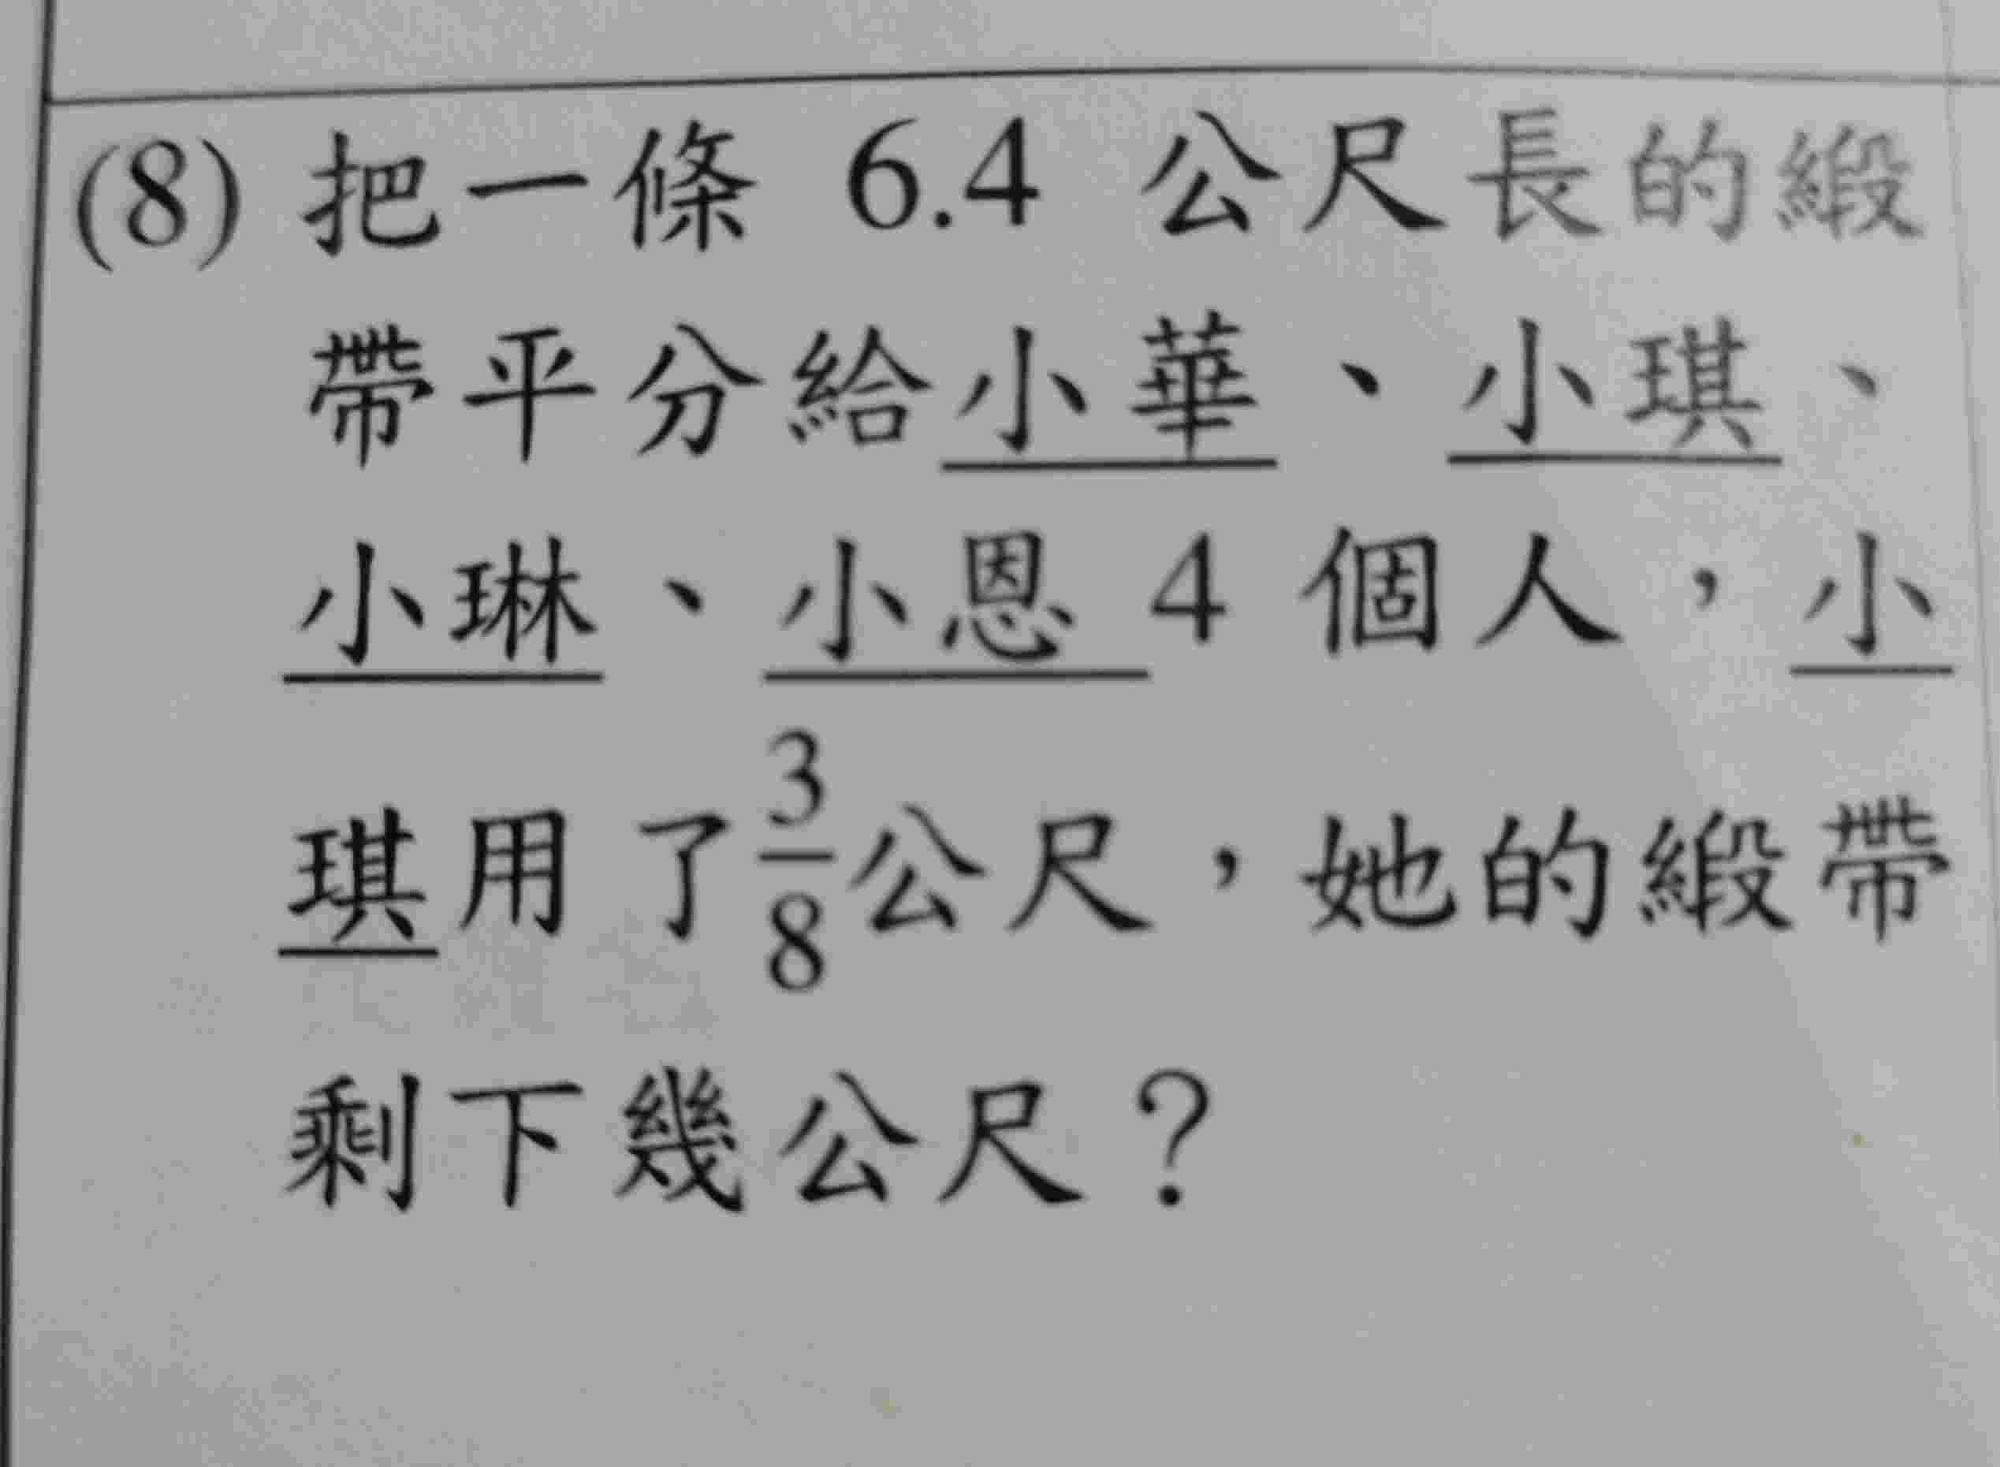 (8) 把一條 6.4 公尺長的緞
帶平分給小華、小琪、
小琳、小恩 4 個人，小
琪用了3/8公尺，她的緞帶
剩下幾公尺？